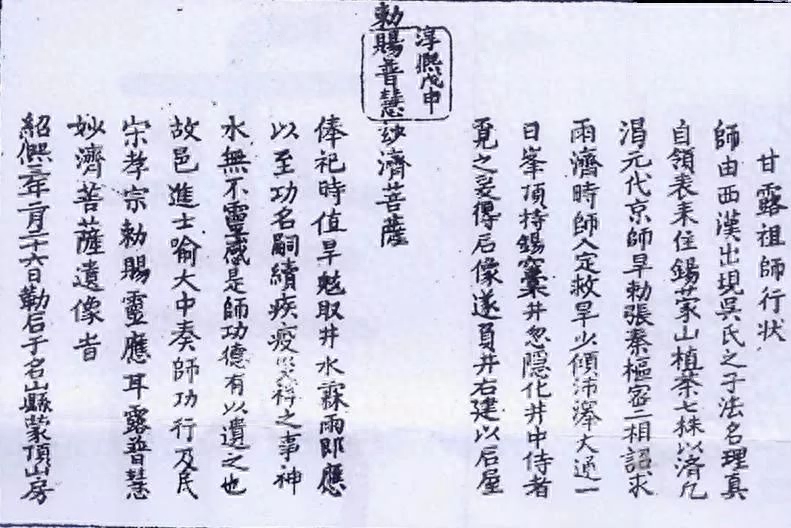 甘露祖師行状
師由西漢出現吳氏之子法名理真
自領表来住錫蒙山植茶七株以济凡
渴元代京師旱勅張秦樞密二相詔求
雨濟時師入定救旱少傾沛澤大通一
日峯頂持錫窠井忽隱化井中侍者
覓之爰得石像遂負井右建以石屋
淳熙戊申
勅賜普慧妙濟菩薩
俸祀時值旱魃取井水霖雨即應
以至功名嗣續疾疫災祥之事神
水無不靈感是師功德有以遺之也
故邑進士喻大中奏師功行及民
宗孝宗勅賜靈應耳露普慧
妙濟菩薩遺像者
紹熙三年二月二十六日勒石于名山縣蒙頂山房